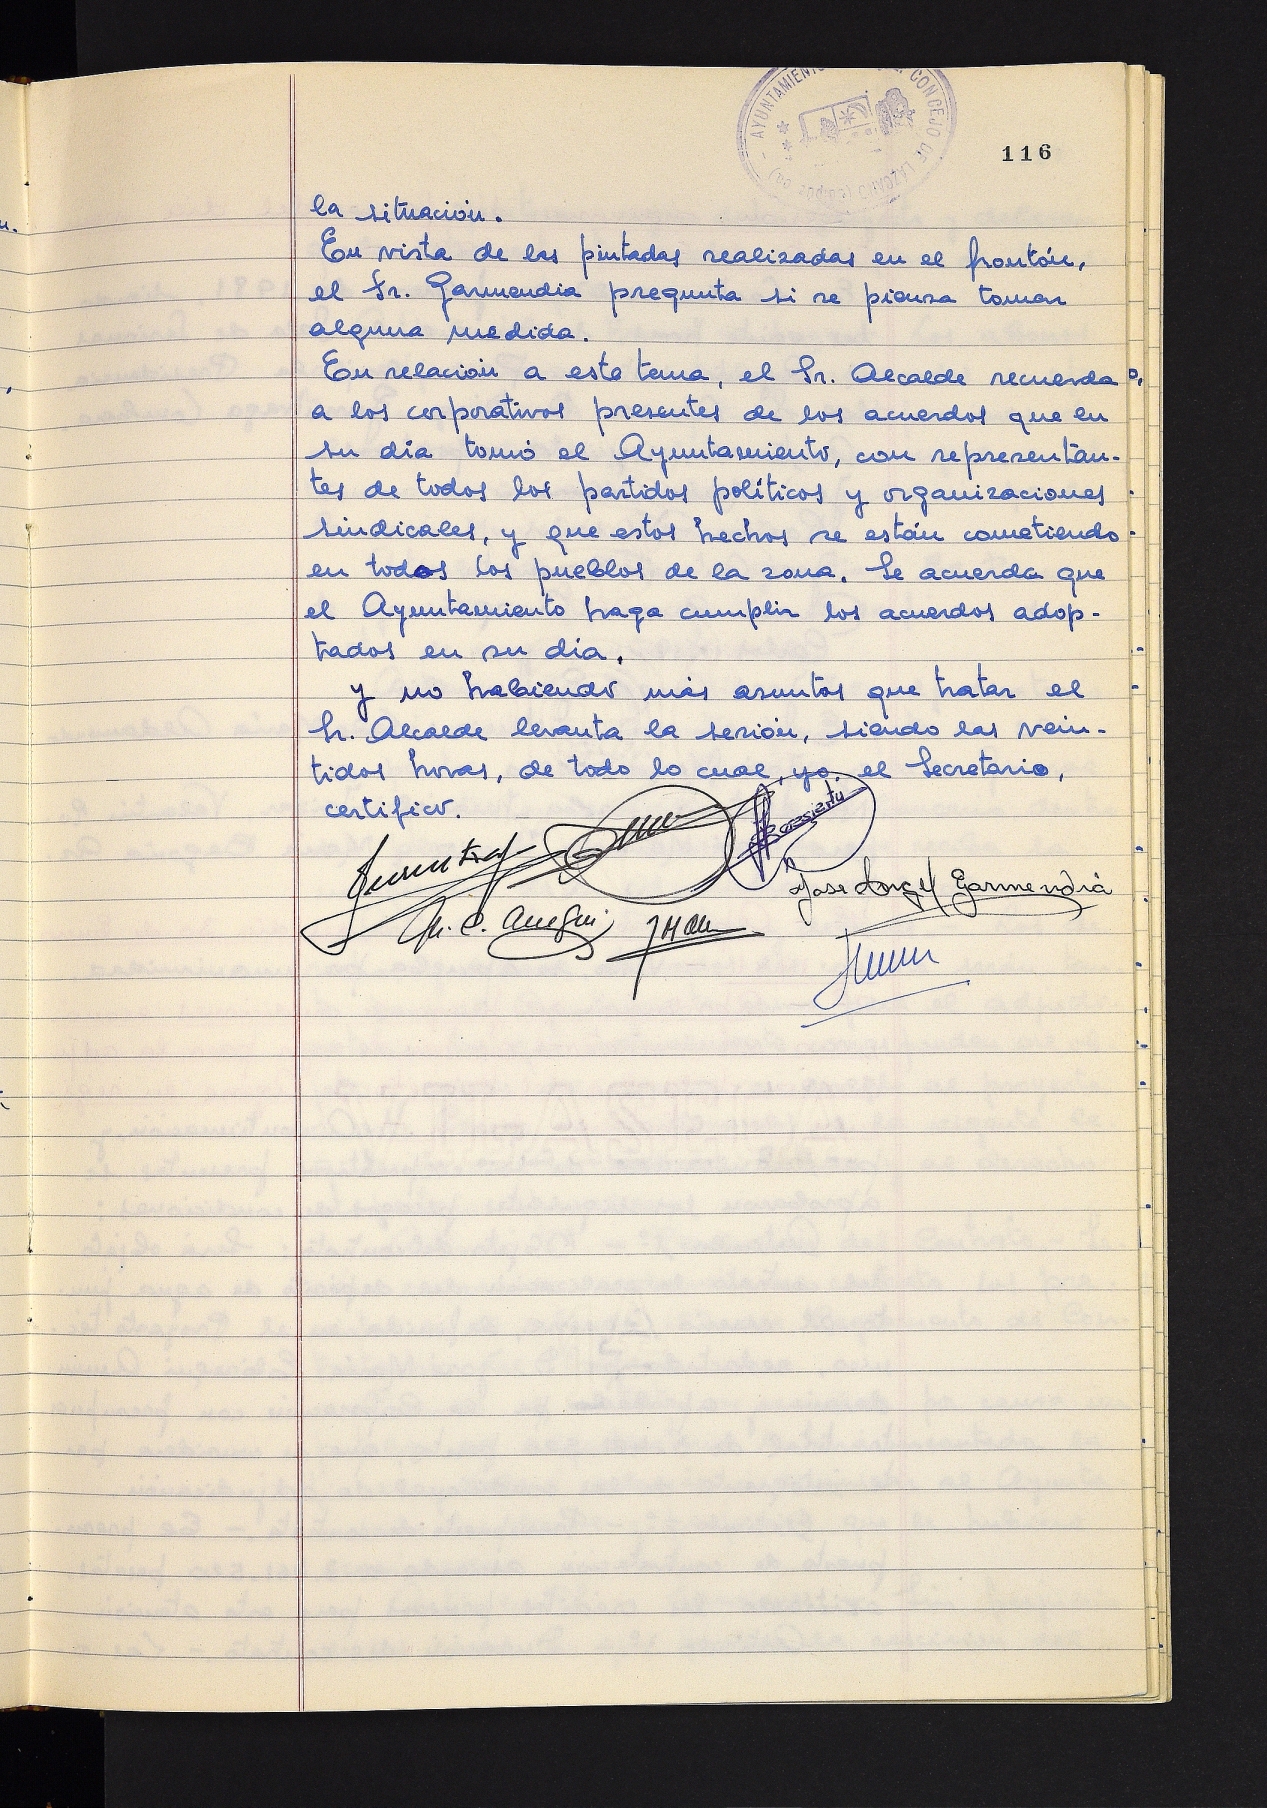 AYUNTAMIENTO CONCEJO DE LAZCANO
116
la situación.
En vista de las pintadas realizadas en el frontón,
el Sr. Garmendia pregunta si se piensa tomar
alguna medida.
En relación a este tema, el Sr. Alcalde recuerda
a los corporativos presentes de los acuerdos que en
su día tomó el Ayuntamiento, con representan-
tes de todos los partidos políticos y organizaciones
sindicales, y que estos hechos se están cometiendo
en todos los pueblos de la zona. Se acuerda que
el Ayuntamiento haga cumplir los acuerdos adop-
tados en su día.
Y no habiendo más asuntos que tratar el
Sr. Alcalde levanta la sesión, siendo las vein-
tidos horas, de todo lo cual, yo, el Secretario,
certifico.
Jose Angel Garmendia